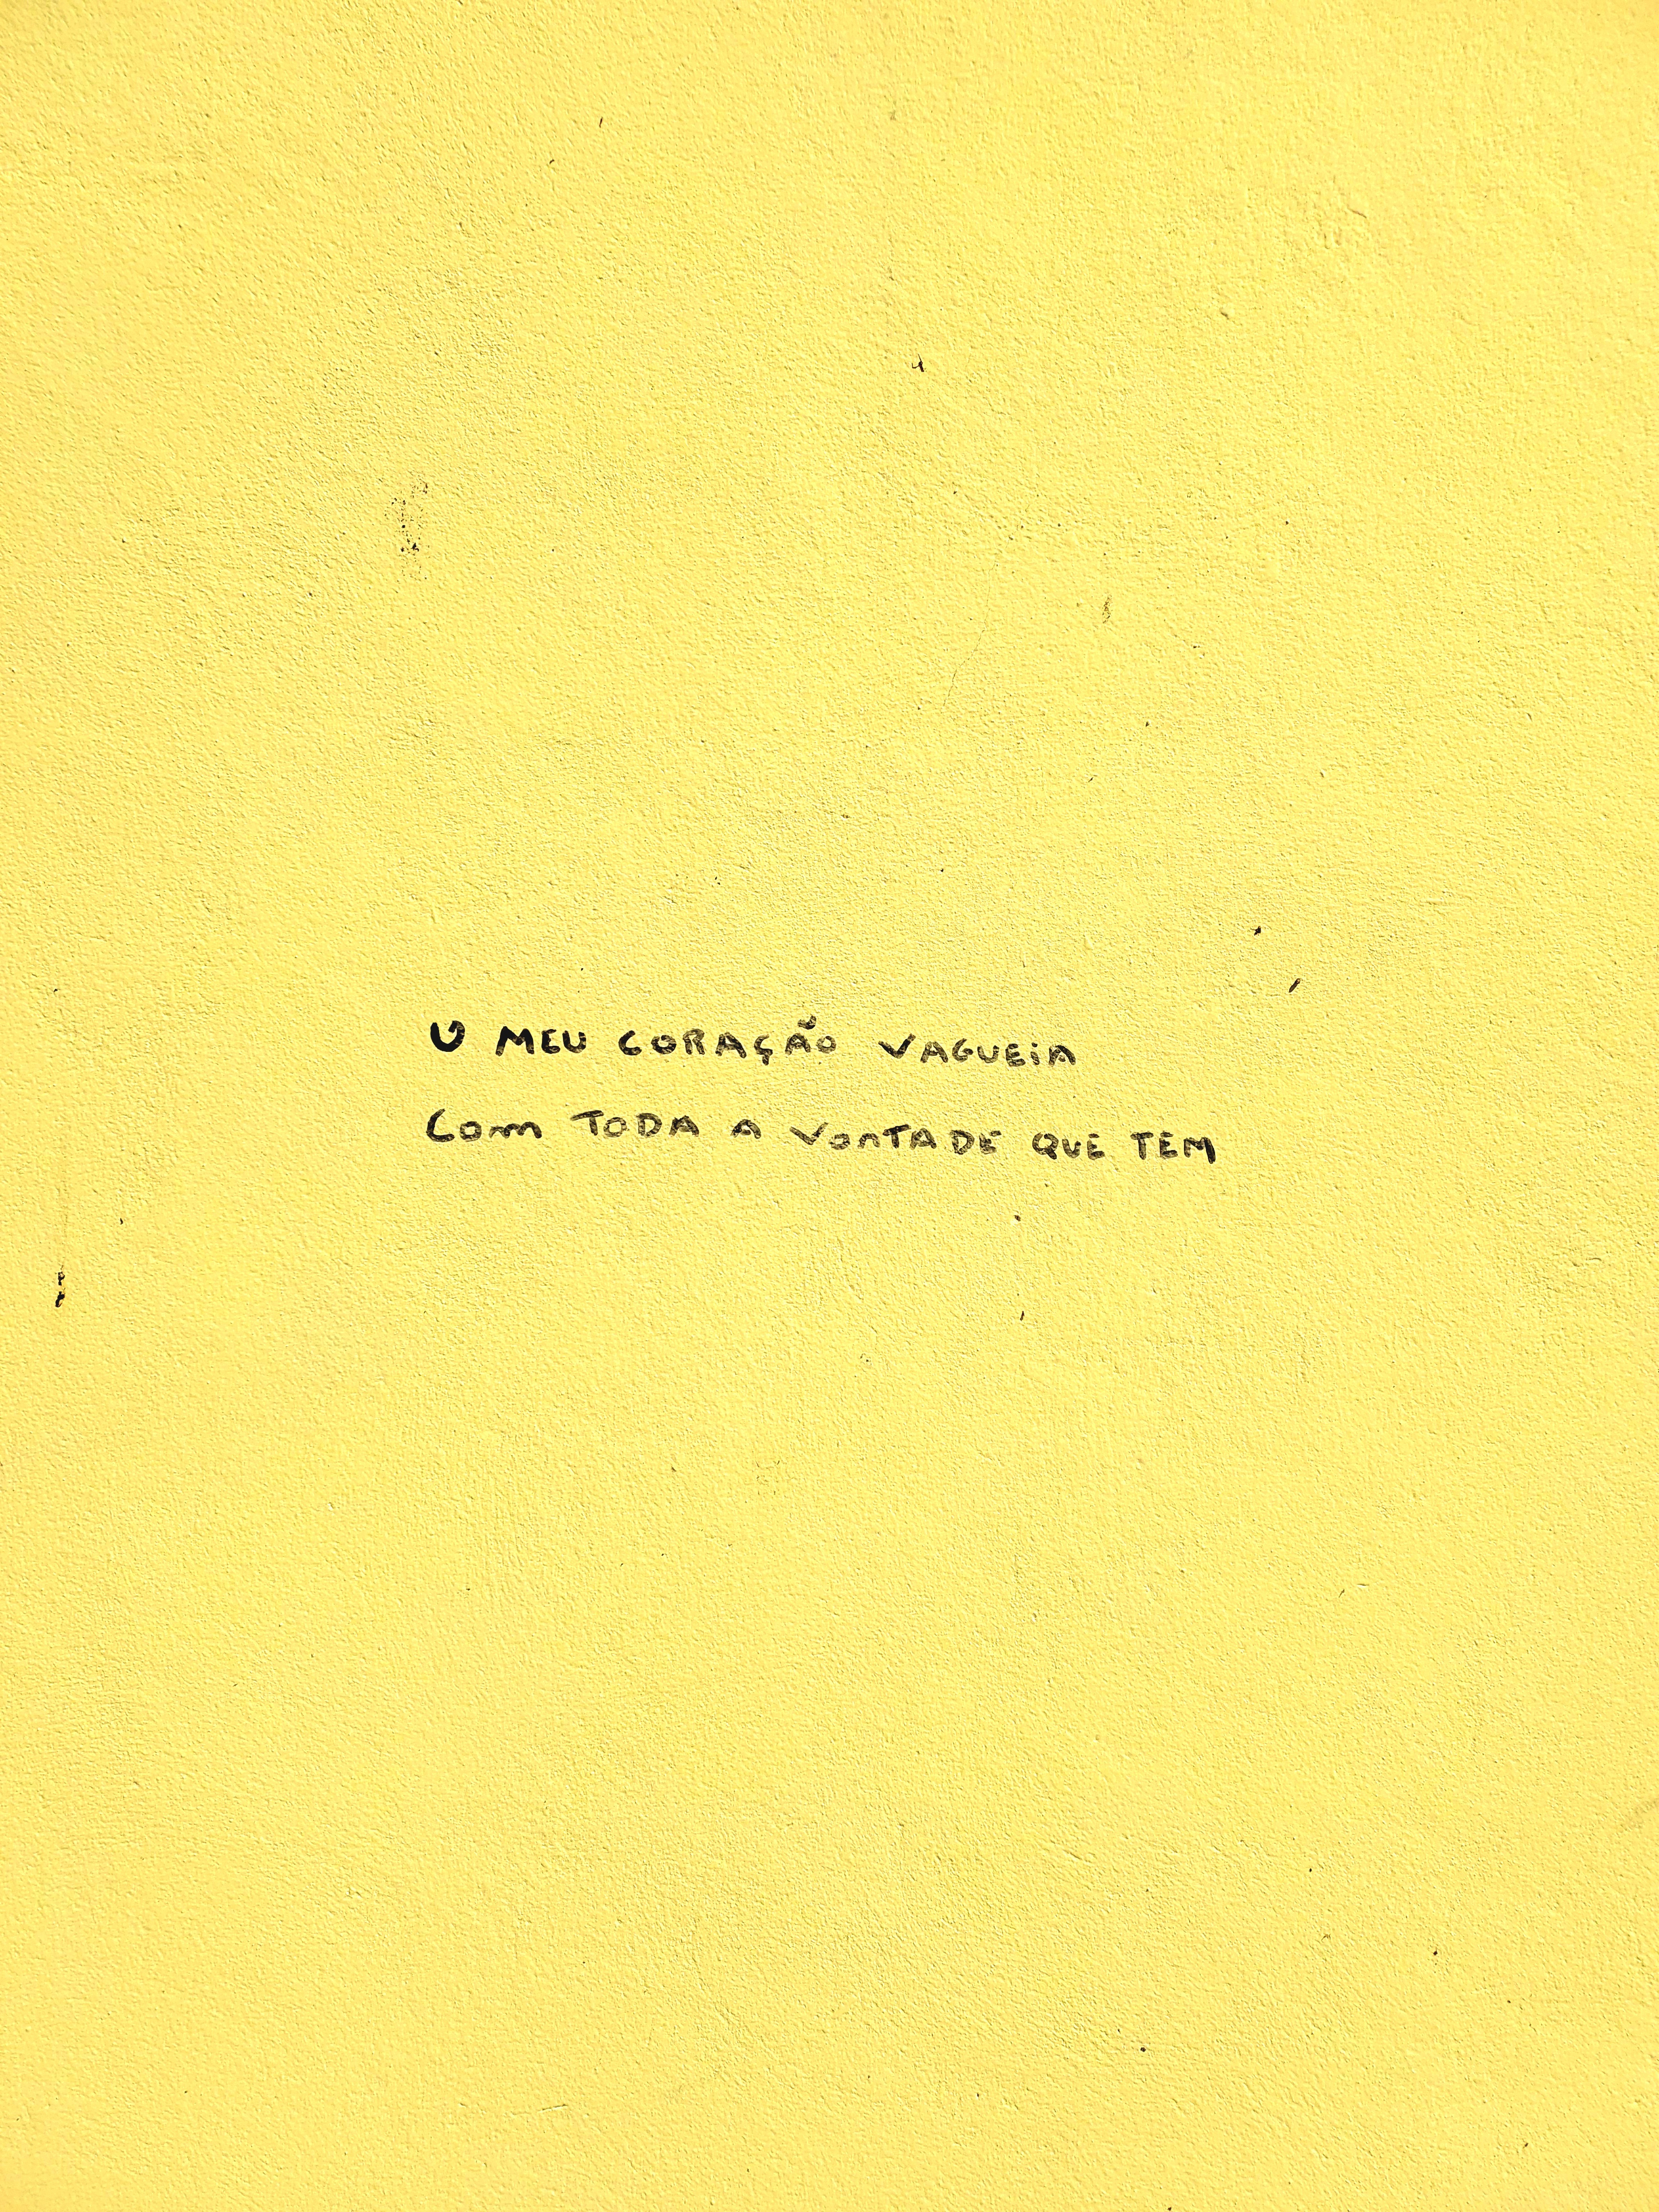 O MEU CORAÇÃO VAGUEIA
COM TODA A VONTADE QUE TEM